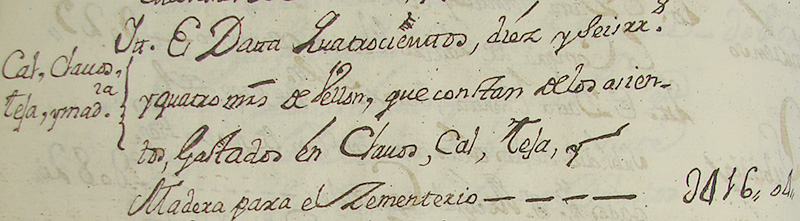 Cal, Clauos,
Teja, y mad.ra
Itt. E Datta Quatrocientos, diez y seis rr.s
y quatro mrs de Vellon, que constan de los asien-
tos, Gastados en Clauos, Cal, Teja, y
Madera para el Zementerio — — — — 416,, 04,,